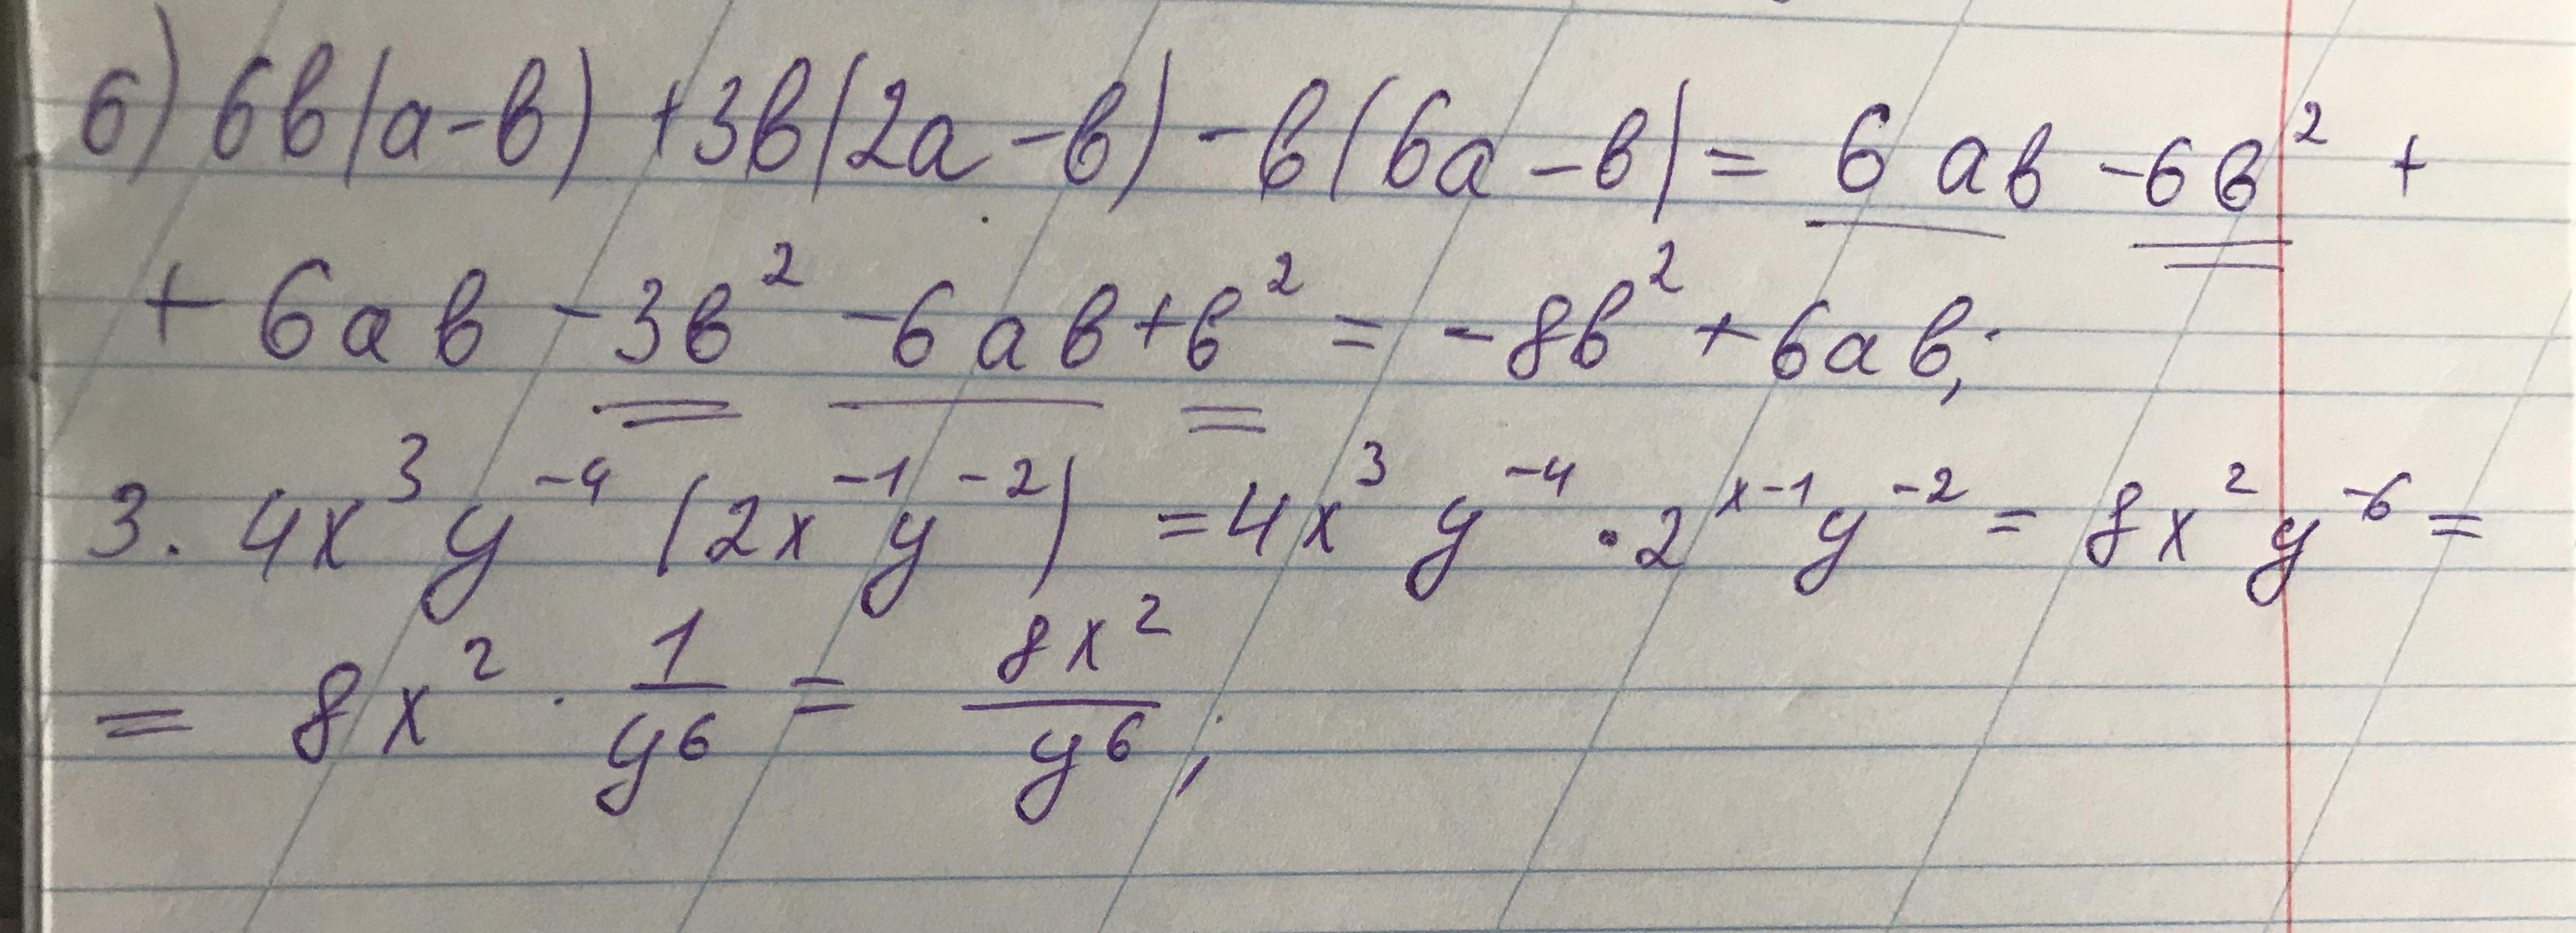 б) 6в(а-в) +3в(2а-в) -в(6а-в) = 6ав -6в² +
+ 6ав -3в² -6ав+в² = -8в² +6ав;
3. 4x³y⁻⁴ (2x⁻¹y⁻²) =4x³ y⁻⁴ • 2ˣ⁻¹y⁻² = 8x²y⁻⁶ =
= 8x² · 1/y⁶ = 8x²/y⁶;